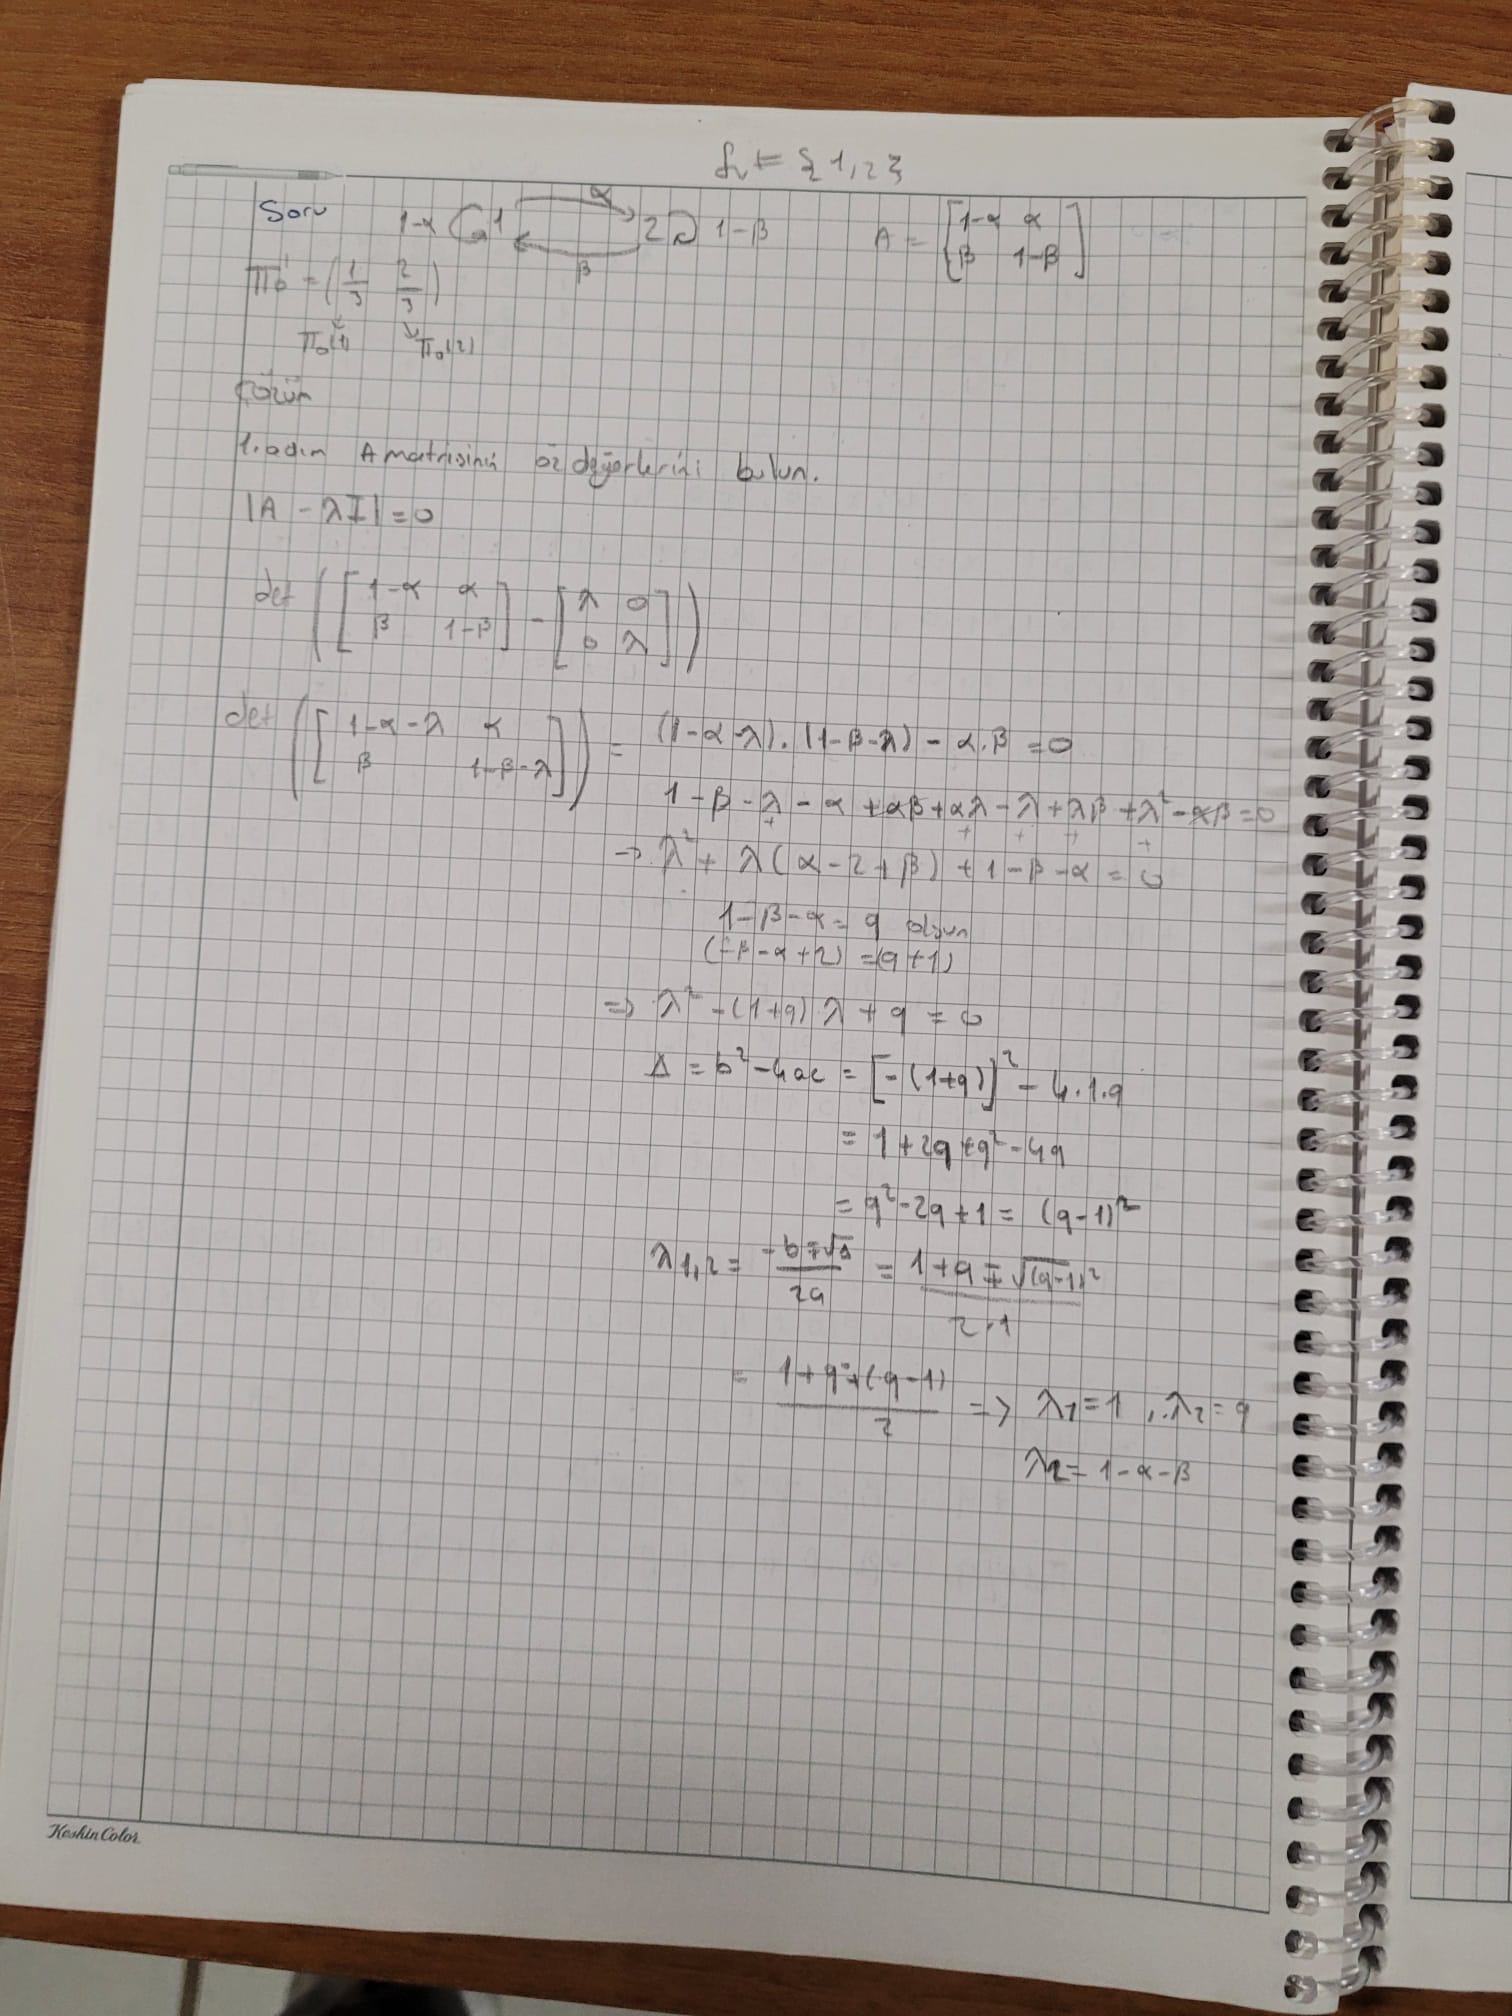 Ω = {1,2}
Soru 1-α 1 α 2 1-β A = [1-α α
β β 1-β]
π₀' = (1/3 2/3)
π₀(1) π₀(2)
Çözüm
1.adım A matrisinin özdeğerlerini bulun.
|A - λI| = 0
det ([1-α α
β 1-β] - [λ 0
0 λ])
det ([1-α-λ α
β 1-β-λ]) = (1-α-λ).(1-β-λ) - α.β = 0
1-β-λ-α+αβ+αλ-λ+λβ+λ²-αβ=0
→ λ² + λ(α-2+β) + 1-β-α = 0
1-β-α = q olsun
(-β-α+2) = (q+1)
⇒ λ² -(1+q) λ + q = 0
Δ = b²-4ac = [-(1+q)]² - 4.1.q
= 1+2q+q²-4q
= q²-2q+1 = (q-1)²
λ1,2 = (-b∓√Δ)/2a = (1+q∓√(q-1)²)/2.1
= (1+q∓(q-1))/2 ⇒ λ₁=1 , λ₂=q
λ₂= 1-α-β
Keskin Color